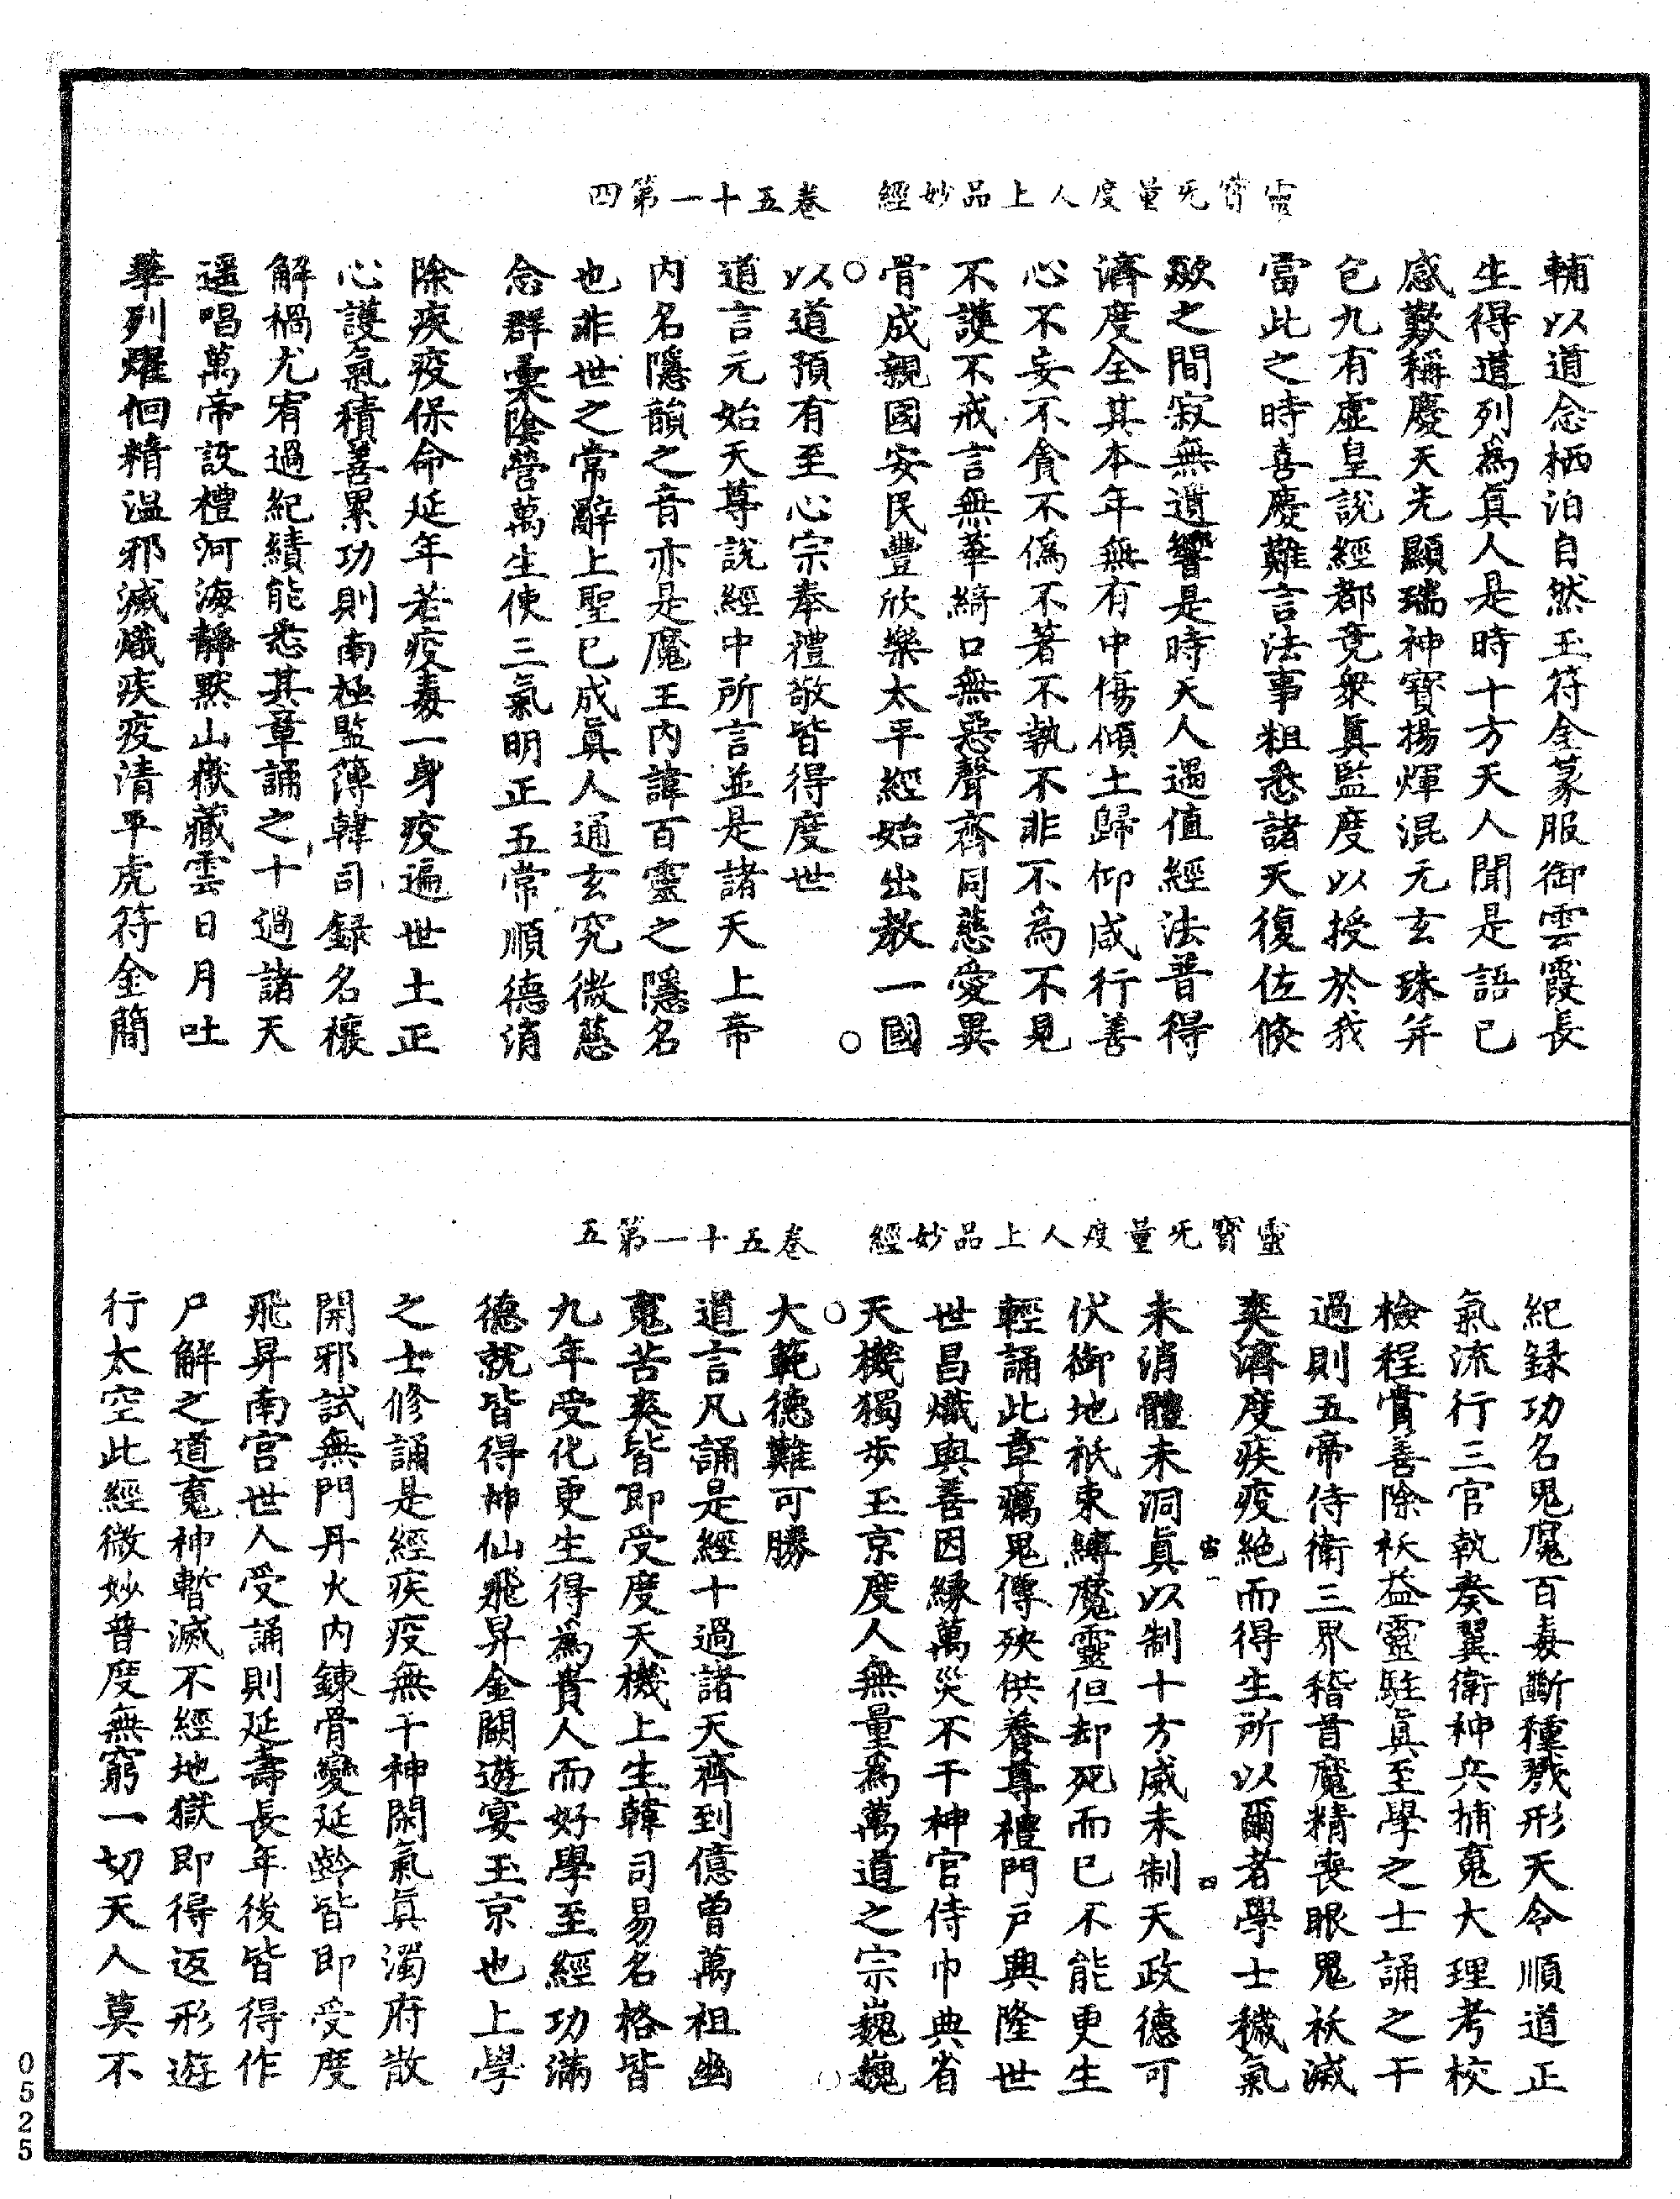 靈寶无量度人上品妙經　卷五十一第四
輔以道念栖泊自然玉符金篆服御雲霞長
生得道列為眞人是時十方天人聞是語已
感歎稱慶天光顯瑞神寶揚煇混元玄珠并
包九有虛皇說經都竟衆眞監度以授於我
當此之時喜慶難言法事粗悉諸天復位倏
歘之間寂無遺響是時天人遇值經法普得
濟度全其本年無有中傷傾土歸仰咸行善
心不妄不貪不僞不著不執不非不為不見
不護不戒言無華綺口無惡聲齊同慈愛異
骨成親國安民豐欣樂太平經始出教一國
以道預有至心宗奉禮敬皆得度世
道言元始天尊說經中所言並是諸天上帝
內名隱韻之音亦是魔王內諱百靈之隱名
也非世之常辭上聖已成眞人通玄究微慈
念群彙陰營萬生使三氣明正五常順德消
除疾疫保命延年若疫毒一身疫遍世土正
心護氣積善累功則南極監簿韓司錄名禳
解禍尤宥過紀績能悉其章誦之十過諸天
遥唱萬帝設禮河海靜默山嶽藏雲日月吐
華列燿佪精溫邪滅熾疾疫清平虎符金簡
靈寶无量度人上品妙經　卷五十一第五
紀錄功名鬼魔百毒斷種戮形天令順道正
氣流行三官執奏翼衛神兵捕䰟大理考校
檢程賞善除祅益靈駐眞至學之士誦之千
過則五帝侍衛三界稽首魔精喪眼鬼祅滅
爽濟度疾疫絕而得生所以爾者學士穢氣
未消體未洞眞以制十方威未制天政德可
伏御地祇束縛魔靈但却死而已不能更生
輕誦此章癘鬼傳殃供養尊禮門戶興隆世
世昌熾與善因緣萬災不干神官侍巾典省
天機獨步玉京度人無量爲萬道之宗巍巍
大範德難可勝
道言凡誦是經十過諸天齊到億曾萬祖幽
䰟苦爽皆即受度天機上生韓司易名格皆
九年受化更生得為貴人而好學至經功滿
德就皆得神仙飛昇金闕遊宴玉京也上學
之士修誦是經疾疫無干神閑氣眞濁府散
開邪試無門丹火內鍊骨變延齡皆即受度
飛昇南宮世人受誦則延壽長年後皆得作
尸解之道䰟神暫滅不經地獄即得返形遊
行太空此經微妙普度無窮一切天人莫不
0525